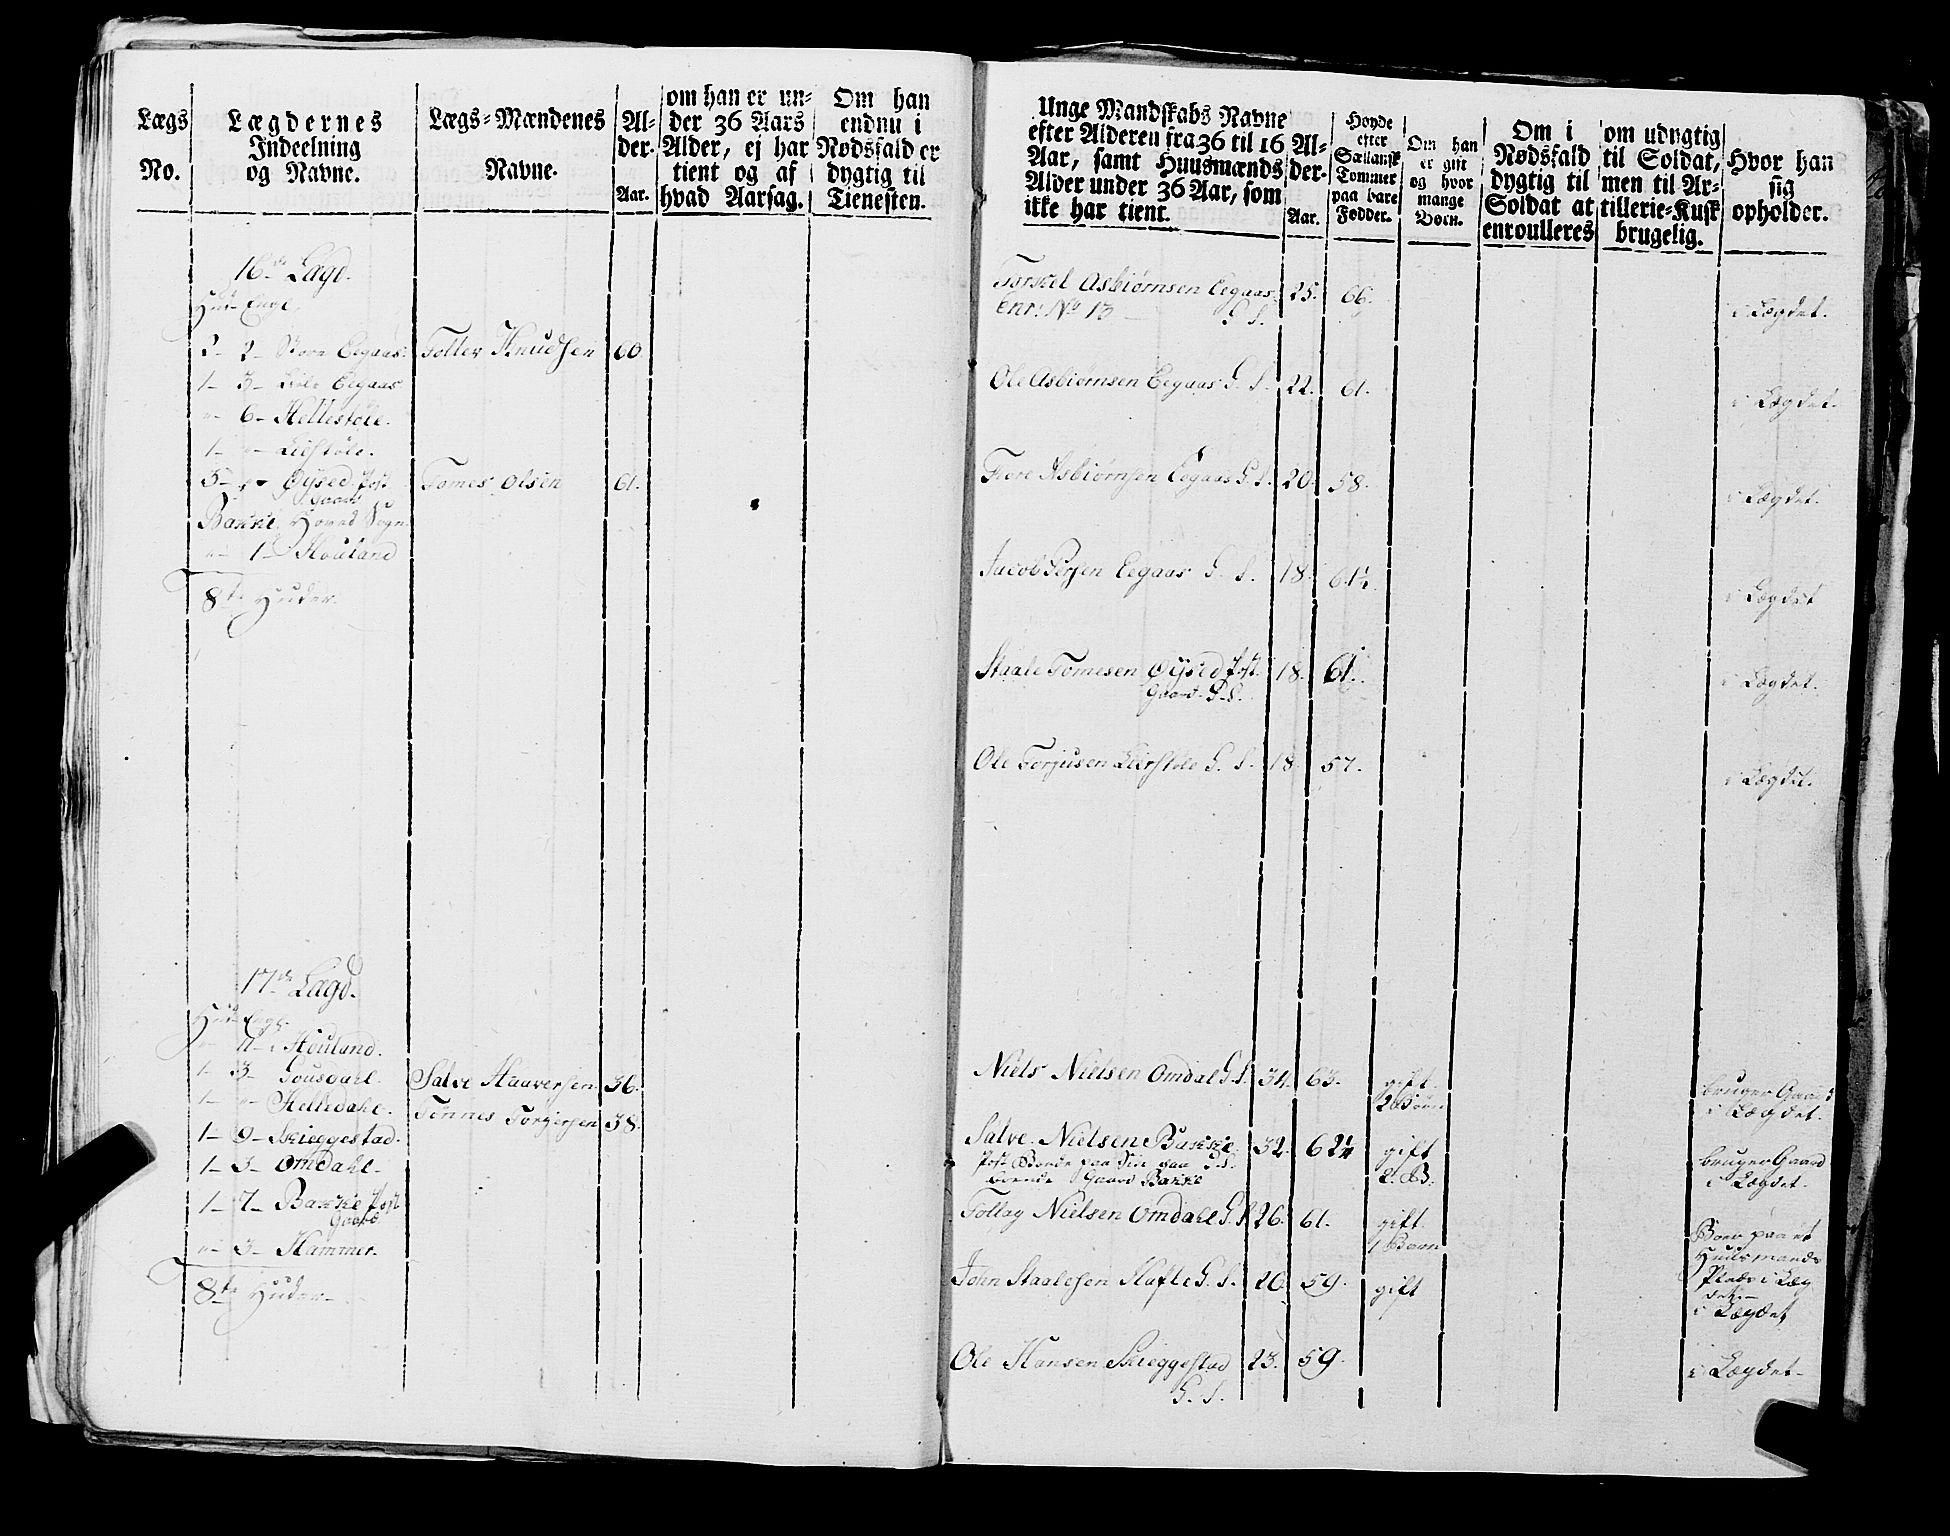 Lægs
No.
Lægdernes
Indeelning
og Navne.
Lægs-Mændenes
Navne.
Al-
der.
Aar.
om han er un-
der 36 Aars
Alder, ej har
tient og af
hvad Aarsag.
Om han
endnu i
Nødsfald er
dygtig til
Tienesten.
16de Lægd.
Hud: Engl.
2- 2- Store Eegaas. Tollev Knudsen 60.
1- 3- Liile Eegaas
6- Hellestøle.
1- Lilstøle.
3- Øysed Post Tomes Olsen 61.
Gaard
Bakke Hoved Sogn
1- Houland
8te Huder.
17de Lægd.
Hud: Engl.
Houland.
1- 3- Gousdahl. Salve Haaversen 36.
1- Helledahl. Tønnes Torgiersen 38.
1- 9- Skieggestad.
1- 3- Omdahl.
1- 7- Bakke Post
Gaard
3- Hammer.
8te Huder.
Unge Mandskabs Navne
efter Alderen fra 36 til 16
Aar, samt Huusmænds
Alder under 36 Aar, som
ikke har tient.
Al-
der.
Aar.
Høyde
efter
Siællansk
Tommer
paa bare
Fødder.
Om han
er gift
og hvor
mange
Børn.
Om i
Nødsfald
dygtig til
Soldat at
enroulleres
om udygtig
til Soldat,
men til Ar-
tillerie-Kusk
brugelig.
Hvor han
sig
opholder.
Torkel Asbiørnsen Eegaas 25. 66. i Lægdet.
enr: No 13 G. S.
Ole Asbiørnsen Eegaas G. S. 22. 61. i Lægdet.
Tore Asbiørnsen Eegaas G. S. 20. 58. i Lægdet.
Jacob Persen Eegaas G. S. 18. 61½ i Lægdet
Staale Tomesen Øysed Post 18. 61. i Lægdet.
Gaard G. S.
Ole Torjusen Lilstøle G. S. 18. 57. i Lægdet.
Niels Nielsen Omdal G. S. 34. 63. gift. bruger Gaard
2 Børn i Lægdet.
Salve Nielsen Bakke 32. 62¼ gift bruger Gaard
Post Bonde paa Sin paa G. S. 2. B. i Lægdet.
boende Gaard Bakke
Tollag Nielsen Omdahl G. S. 26. 61. gift Boer paa et
1 Barn Huusmands
Plads i Læg
det.
John Staalesen G. S. 26. 59. gift i Lægdet
Ole Hansen Skieggestad 23. 59. i Lægdet.
G. S.